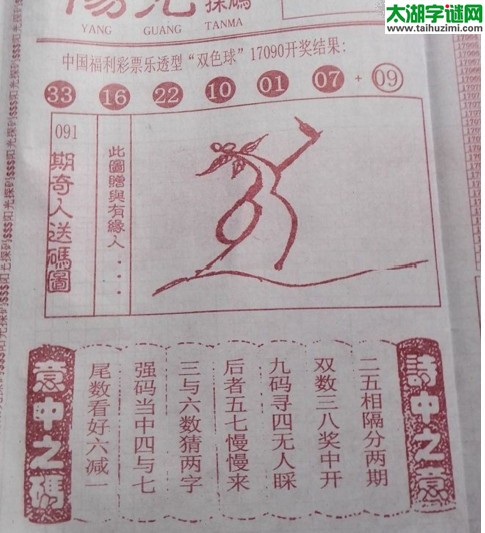 太湖字谜网
www.taihuzimi.com
陽光探碼
YANG GUANG TANMA
中国福利彩票乐透型“双色球”17090开奖结果:
33 16 22 10 01 07 + 09
091期奇人送碼圖
此圖贈與有緣人...
詩中之意
二五相隔分两期
双数三八奖中开
九码寻四无人睬
后者五七慢慢来
三与六数猜两字
强码当中四与七
尾数看好六减一
意中之碼